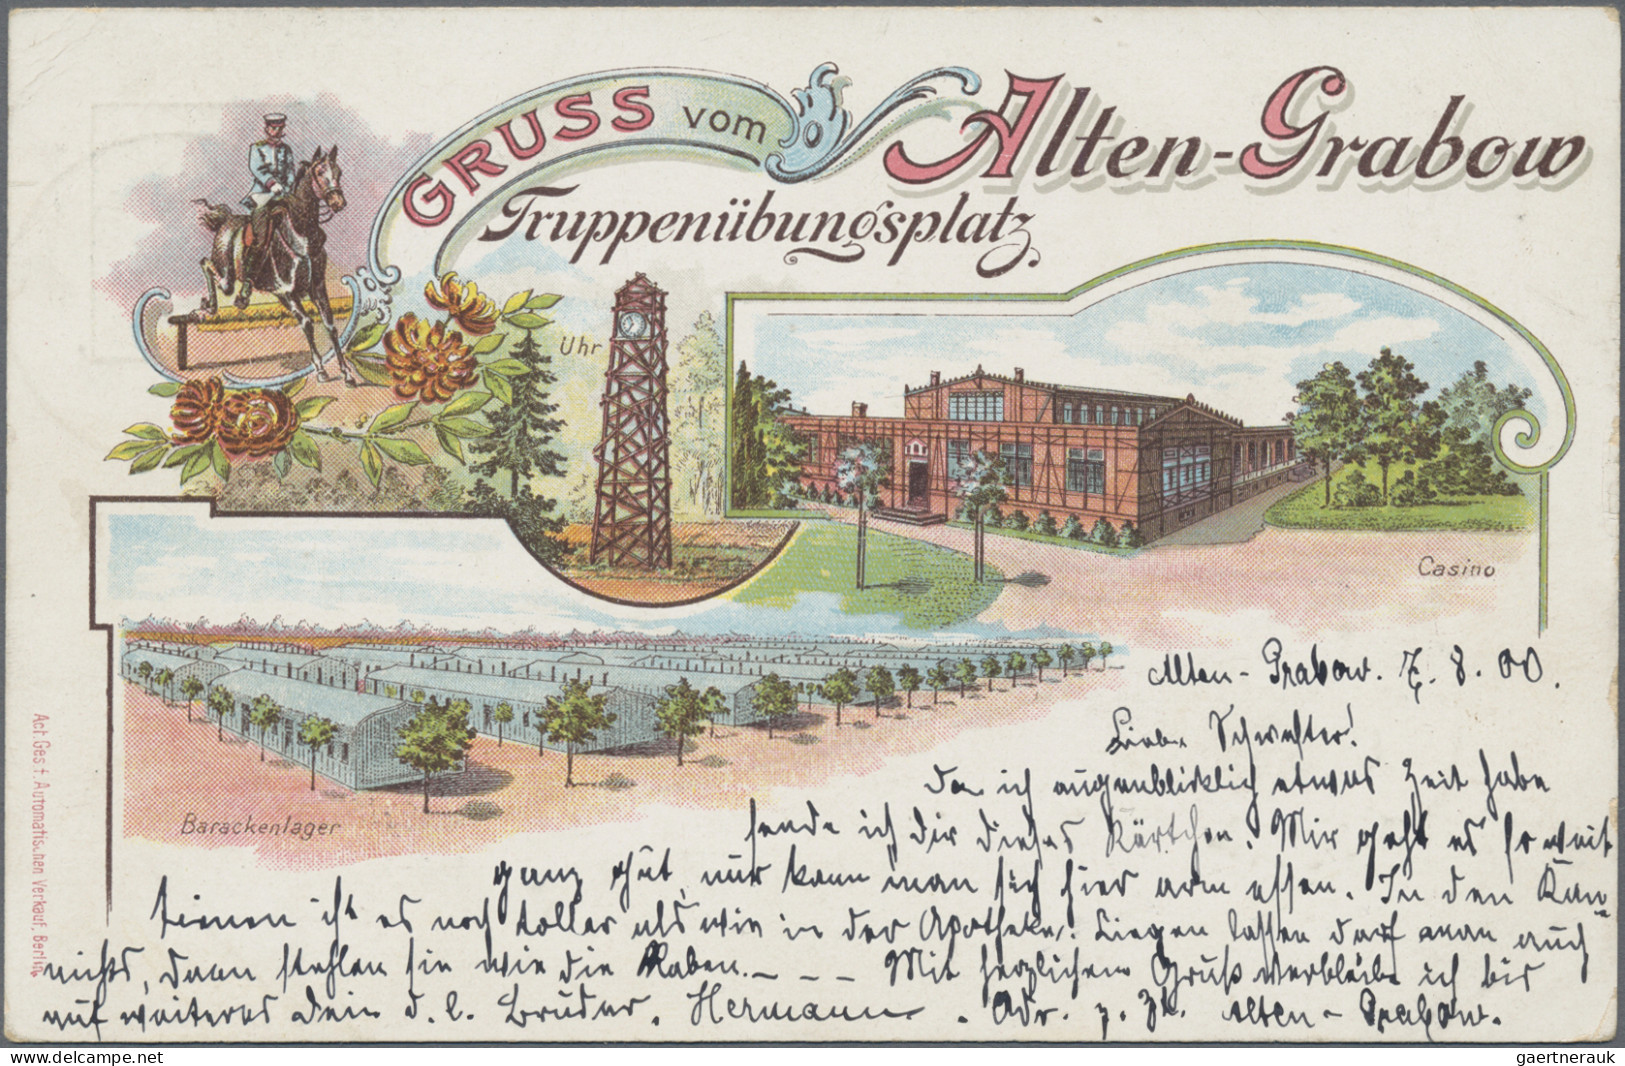 GRUSS vom Alten-Grabow
Truppenübungsplatz.
Uhr
Casino
Barackenlager
Act. Ges. f. Automatischen Verkauf, Berlin
Alten-Grabow. 7. 8. 00.
Liebe Schwester!
Da ich augenblicklich etwas Zeit habe
sende ich dir dieses Kärtchen. Mir geht es so weit
ganz gut, nur kann man sich hier arm essen. In den Kan-
tienen ist es noch toller als wie in der Apotheke. Liegen lassen darf man auch
nichts, dann stehlen sie wie die Raben. - - - Mit herzlichem Gruß verbleibe ich bis
auf weiteres dein d. l. Bruder. Hermann. Adr. z. Zt. Alten-Grabow.
gaertnerauk @ delcampe.net